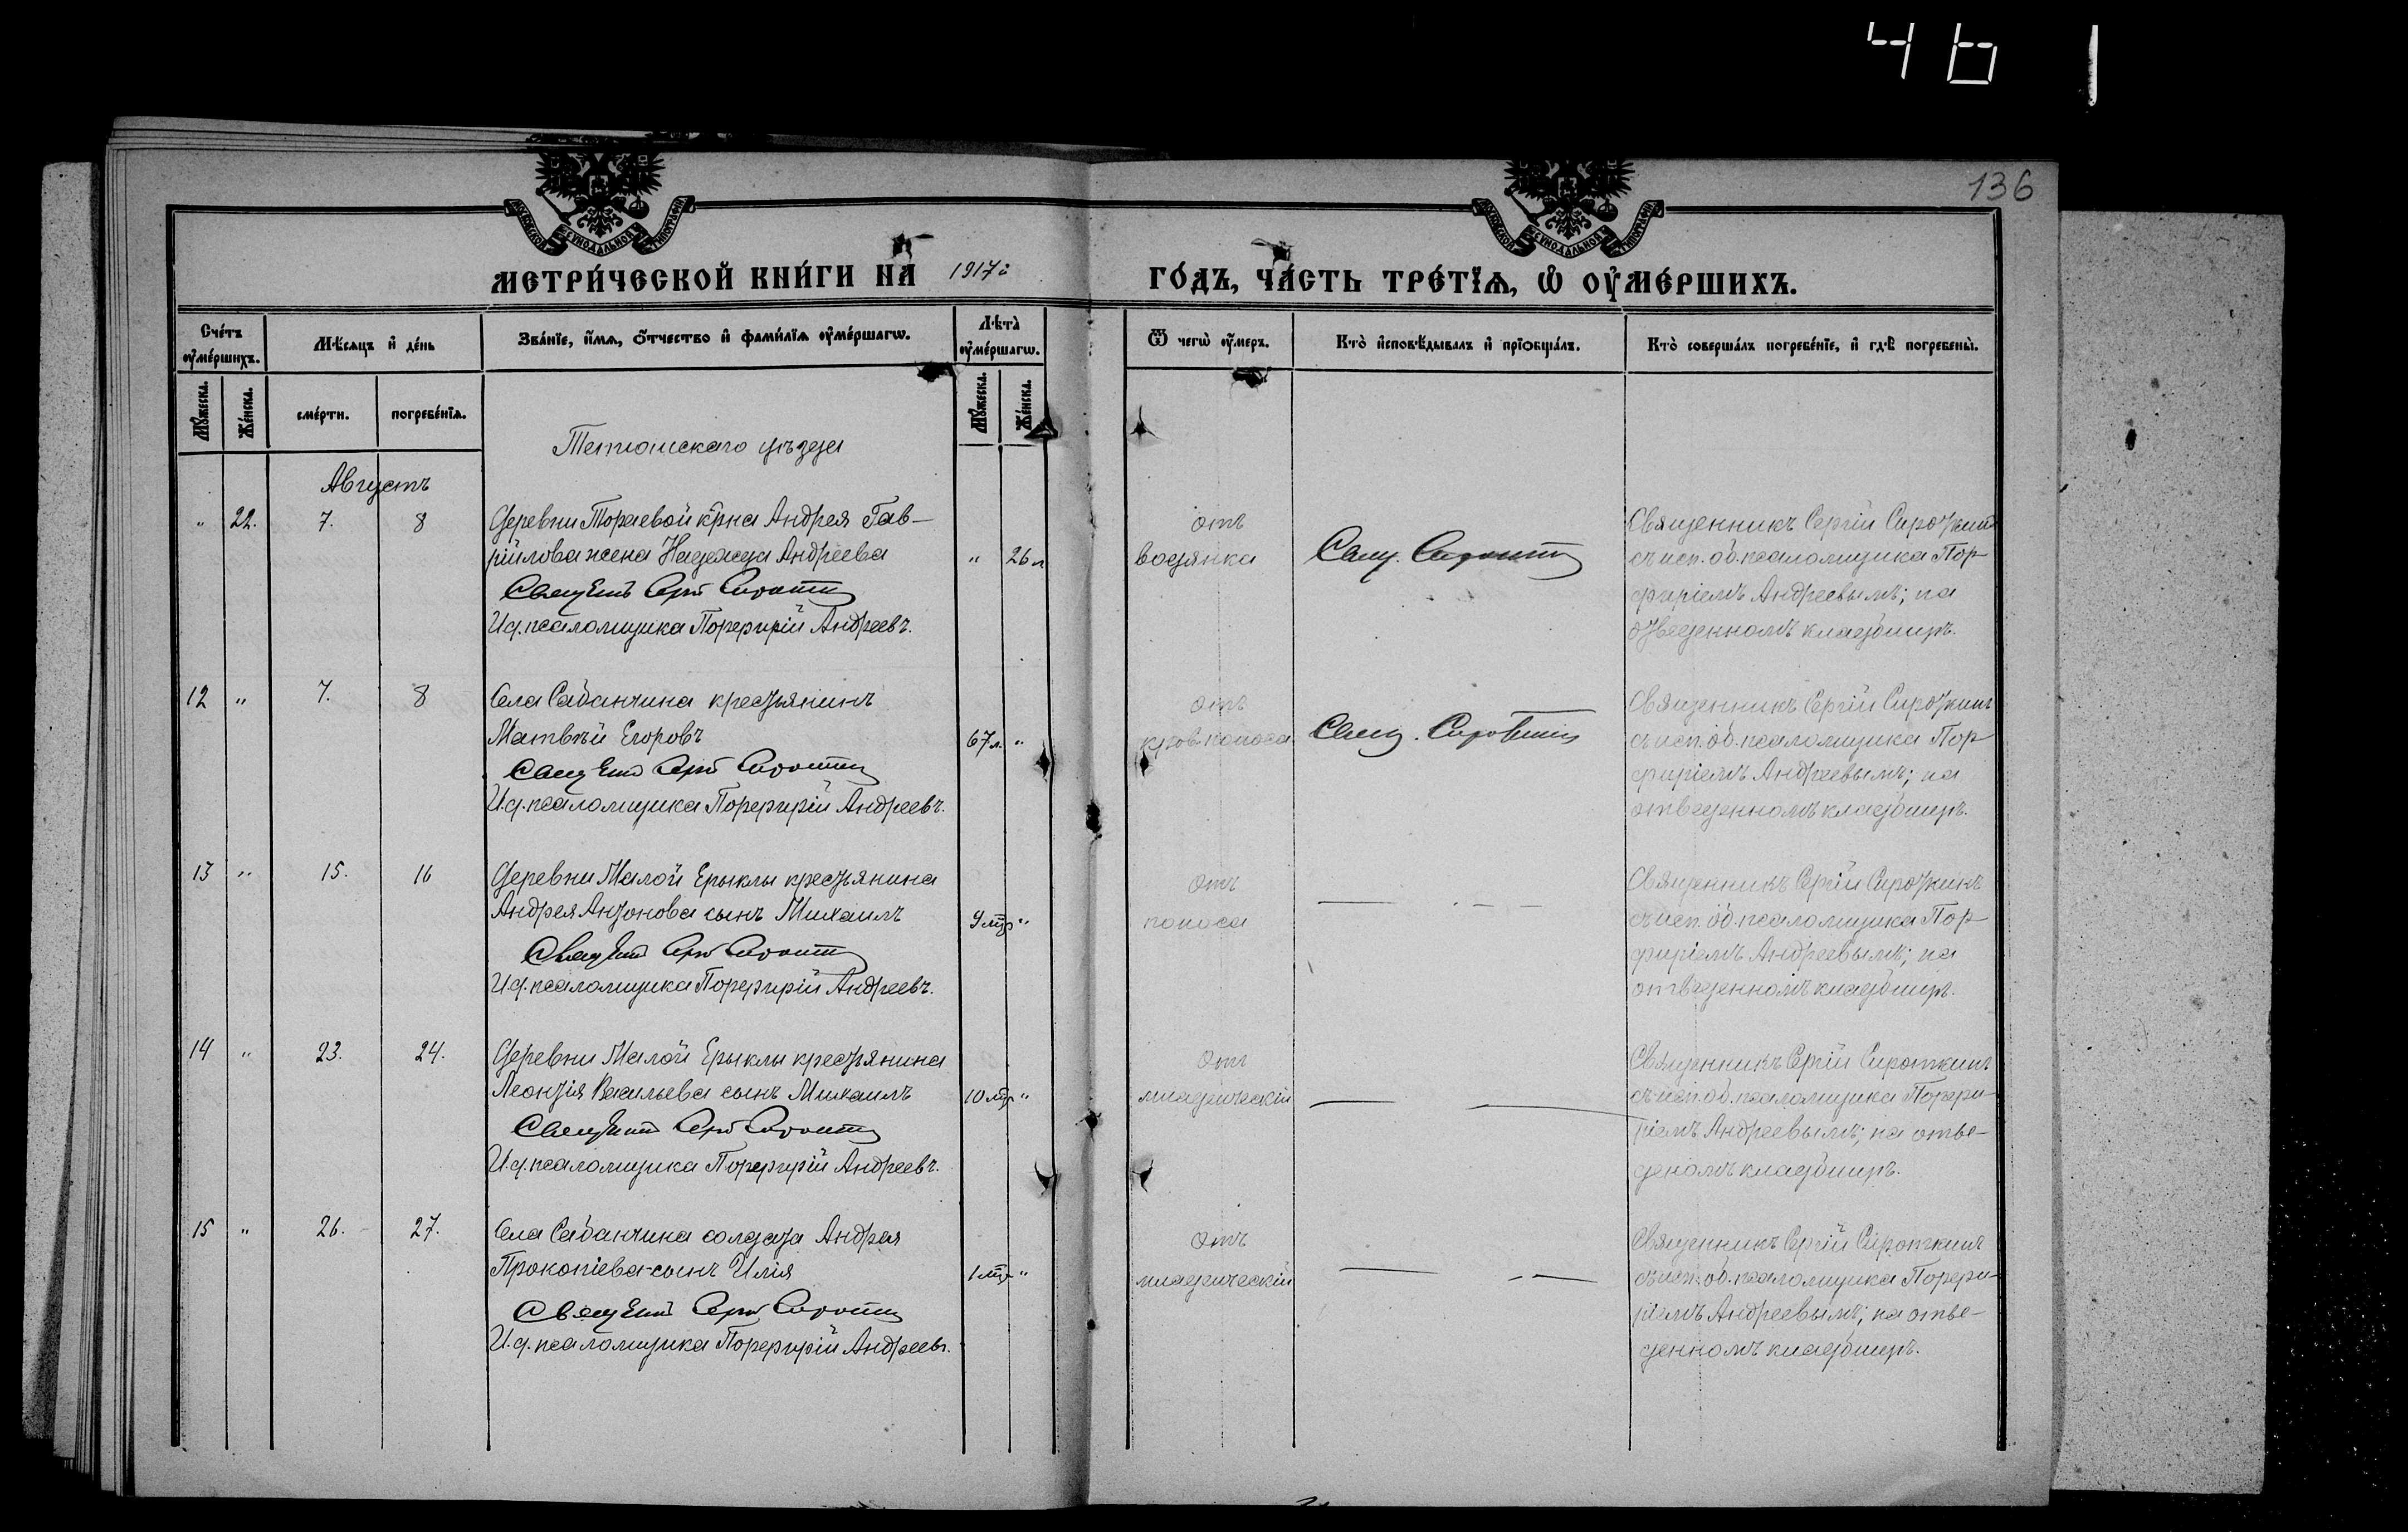 461
136
МОСКОВСКОЙ СѴНОДАЛЬНОЙ ТИПОГРАФІИ
МОСКОВСКОЙ СѴНОДАЛЬНОЙ ТИПОГРАФІИ
МЕТРИ́ЧЕСКОЙ КНИ́ГИ НА 1917й ГО́ДЪ, ЧА́СТЬ ТРЕ́ТЇѦ, Ѡ ОУ҆МЕ́РШИХЪ.
Сче́тъ оу҆ме́ршихъ.
Мѣ́сяцъ и҆ де́нь
Зва́нїе, и҆́мѧ, ѻ҆́тчество и҆ фами́лїѧ оу҆ме́ршагѡ.
Лѣта̀ оу҆ме́ршагѡ.
Ѿ чегѡ̀ оу҆́меръ.
Кто̀ и҆сповѣ́дывалъ и҆ прїѻбща́лъ.
Кто̀ соверша́лъ погребе́нїе, и҆ гдѣ̀ погребены̀.
Мꙋ́жеска. Же́нска. сме́рти. погребе́нїѧ. Мꙋ́жеска. Же́нска.
Тетюшскаго уѣзда
Августъ
" 22. 7. 8 Деревни Тораевой кр-на Андрея Гав-
рiилова жена Надежда Андреева " 26 л
Священ. Сергій Сироткин
И.д. псаломщика Порфирій Андреевъ.
отъ
водянка
Свящ. Сироткин
Священникъ Сергій Сироткинъ
съ исп. об. псаломщика Пор-
фиріемъ Андреевымъ; на
отведенномъ кладбищѣ.
12 " 7. 8 Села Сабанчина крестьянинъ
Матвѣй Егоровъ 67 л. "
Священ. Сергій Сироткин
И.д. псаломщика Порфирій Андреевъ.
отъ
кров. поноса
Свящ. Сироткин
Священникъ Сергій Сироткинъ
съ исп. об. псаломщика Пор
фиріемъ Андреевымъ; на
отведенномъ кладбищѣ.
13 " 15. 16 Деревни Малой Ерыклы крестьянина
Андрея Антонова сынъ Михаилъ 9 мѣс "
Священ. Сергій Сироткин
И.д. псаломщика Порфирій Андреевъ.
Отъ
поноса
Священникъ Сергій Сироткинъ
съ исп. об. псаломщика Пор-
фиріемъ Андреевымъ; на
отведенномъ кладбищѣ.
14 " 23. 24. Деревни Малой Ерыклы крестьянина
Леонтія Васильева сынъ Михаилъ 10 мѣс "
Священ. Сергій Сироткин
И.д. псаломщика Порфирій Андреевъ.
Отъ
младическій
Священникъ Сергій Сироткинъ
съ исп. об. псаломщика Порфи-
ріемъ Андреевымъ; на отве-
деномъ кладбищѣ.
15 " 26. 27. Села Сабанчина солдата Андрея
Прокопіева-сынъ Илія 1 мѣс "
Священ. Сергій Сироткин
И.д. псаломщика Порфирій Андреевъ.
Отъ
младическій
Священникъ Сергій Сироткинъ
съ исп. об. псаломщика Порфи-
ріемъ Андреевымъ; на отве-
денномъ кладбищѣ.